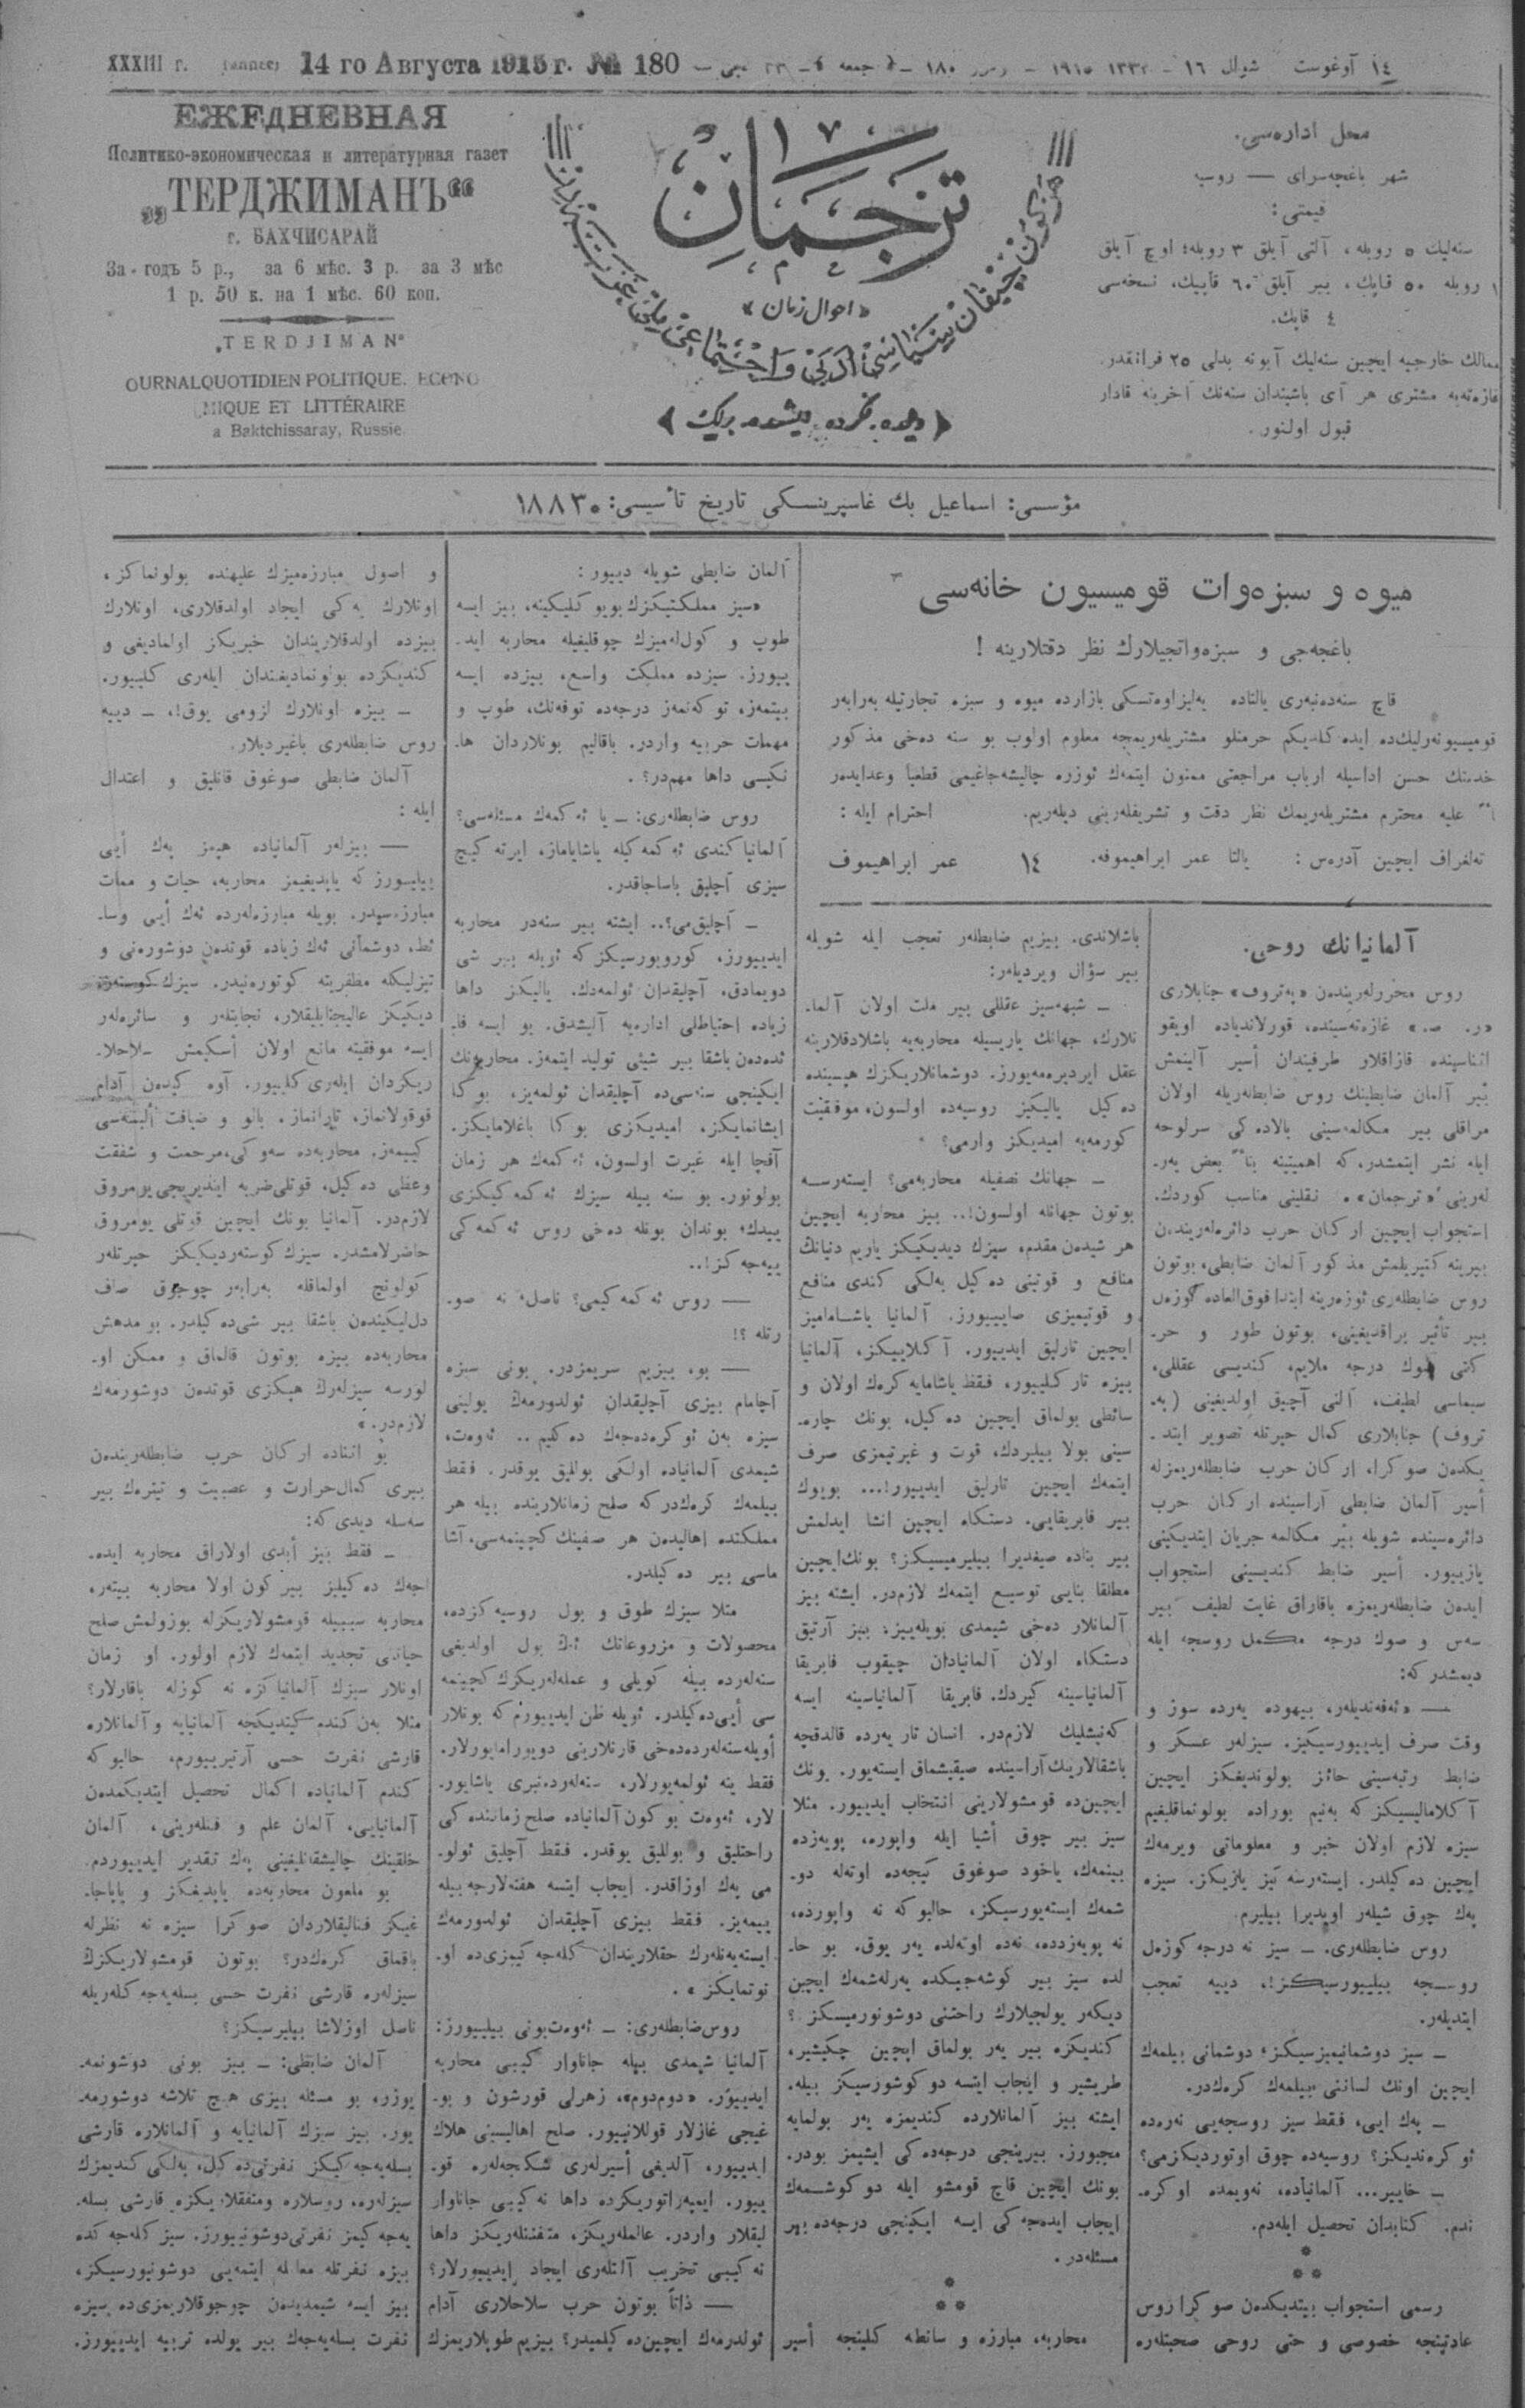 XXXIII г. 14 го Августа 1915 г. № 180
١٤ آوغوست شوال ١٦ - ١٣٣٣ ١٩١٥ - ١٨٠ جمعه
ЕЖЕДНЕВНАЯ
Политико-экономическая и литературная газет
„ТЕРДЖИМАНЪ“
г. БАХЧИСАРАЙ
За годъ 5 р., за 6 мѣс. 3 р. за 3 мѣс
1 р. 50 к. на 1 мѣс. 60 коп.
„TERDJIMAN“
OURNALQUOTIDIEN POLITIQUE. ECONO
MIQUE ET LITTÉRAIRE
a Baktchissaray, Russie.
ترجمان
«احوال زمان»
محل اداره‌سی.
شهر باغچه‌سرای — روسیه
قیمتی:
سنه‌لیك ٥ روبله، آلتی آیلق ٣ روبله؛ اوچ آیلق
١ روبله ٥٠ قاپك، بیر آیلق ٦٠ قاپیك، نسخه‌سی
٤ قاپك.
ممالك خارجیه ایچین سنه‌لیك آبونه بدلی ٢٥ فرانقدر.
غازه‌ته‌یه مشتری هر آی باشیندان سنه‌نك آخرینه قادار
قبول اولنور.
مؤسسی: اسماعیل بك غاسپرینسكی تاریخ تأسیسی: ١٨٨٣
میوه و سبزه‌وات قومیسیون خانه‌سی
باغچه‌جی و سبزه‌واتجیلارك نظر دقتلارینه !
قاچ سنه‌ده‌نبه‌ری یالتاده یه‌لیزاوه‌تسكی بازارده میوه و سبزه تجارتیله به‌رابه‌ر
قومیسیونه‌رلیك‌ده ایده كلدیكم حرمتلو مشتریله‌ریمجه معلوم اولوب بو سنه ده‌خی مذكور
خدمتك حسن اداسیله ارباب مراجعتی ممنون ایتمه‌ك ئوزره چالیشه‌جاغیمی قطعیاً وعدایده‌ر
علیه محترم مشتریله‌ریمك نظر دقت و تشریفله‌رینی دیله‌ریم. احترام ایله :
ته‌لغراف ایچین آدره‌س : یالتا عمر ابراهیموفه. ١٤ عمر ابراهیموف
آلمانیانك روحی.
روس محررله‌ریندن «په‌تروف» جنابلاری
«ر. ص.» غازه‌ته‌سینده، قورلاندیاده اویقو
اثناسینده قازاقلار طرفیندان أسیر آلینمش
بیر آلمان ضابطینك روس ضابطله‌ریله اولان
مراقلی بیر مكالمه‌سینی بالاده‌كی سرلوحه
ایله نشر ایتمشدر، كه اهمیتینه بناً بعض یه‌ر-
له‌رینی «ترجمان»ه نقلینی مناسب كوردك.
استجواب ایچین اركان حرب دائره‌له‌ریندن
بیرینه كتیریلمش مذكور آلمان ضابطی، بوتون
روس ضابطله‌ری ئوزه‌رینه ابتدا فوق‌العاده كوزه‌ل
بیر تأثیر براقدیغینی، بوتون طور و حر-
كتی صوك درجه ملایم، كندیسی عقللی،
سیماسی لطیف، آلنی آچیق اولدیغینی (په-
تروف) جنابلاری كمال حیرتله تصویر ایتد-
یكدن صوكرا، اركان حرب ضابطله‌ریمزله
أسیر آلمان ضابطی آراسینده اركان حرب
دائره‌سینده شویله بیر مكالمه جریان ایتدیكینی
یازییور. أسیر ضابط كندیسینی استجواب
ایده‌ن ضابطله‌ریمزه باقاراق غایت لطیف بیر
سه‌س و صوك درجه مكمل روسجه ایله
دیمشدر كه:
— «ئه‌فه‌ندیله‌ر، بیهوده یه‌رده سوز و
وقت صرف ایدییورسیكیز. سیزله‌ر عسكر و
ضابط رتبه‌سینی حائز بولوندیغكز ایچین
آكلامالیسیكز كه به‌نیم بوراده بولونماقلیغیم
سیزه لازم اولان خبر و معلوماتی ویرمه‌ك
ایچین ده‌كیلدر. ایسته‌رسه‌نیز یازیكز. سیزه
په‌ك چوق شیله‌ر اویدیرا بیلیرم.
روس ضابطله‌ری. — سیز نه درجه كوزه‌ل
روسجه بیلییورسیكز!، دییه تعجب
ایتدیله‌ر.
— سیز دوشمانیمیزسیكز؛ دوشمانی بیلمه‌ك
ایچین اونك لساننی بیلمه‌ك كره‌كدر.
— په‌ك ایی، فقط سیز روسجه‌یی نه‌ره‌ده
ئوكره‌ندیكز؟ روسیه‌ده چوق اوتوردیكزمی؟
— خاییر... آلمانیاده، ئه‌ویمده اوكره-
ندم. كتابدان تحصیل ایله‌دم.
* * *
رسمی استجواب بیتدیكدن صوكرا روس
عادتینجه خصوصی و حتی روحی صحبتله‌ره
باشلاندی. بیزیم ضابطله‌ر تعجب ایله شویله
بیر سؤال ویردیله‌ر:
— شبهه‌سیز عقللی بیر ملت اولان آلما-
نلارك، جهانك یاریسیله محاربه‌یه باشلادقلارینه
عقل ایردیره‌مه‌یورز. دوشمانلاریكزك هیسینده
ده‌كیل یالیكیز روسیه‌ده اولسون، موفقیت
كورمه‌یه امیدیكز وارمی؟
— جهانك نصفیله محاربه‌می؟ ایسته‌رسه
بوتون جهانله اولسون!.. بیز محاربه ایچین
هر شیدن مقدم، سیزك دیدیكیكز یاریم دنیانك
منافع و قوتینی ده‌كیل به‌لكی كندی منافع
و قوتیمیزی صاییورز. آلمانیا یاشاماميز
ایچین تارلیق ایدییور. آكلاییكز، آلمانیا
بیزه تار كلییور، فقط یاشامایه كره‌ك اولان و
سائطی بولماق ایچین ده‌كیل، بونك چاره-
سینی بولا بیلیردك، قوت و غیرتیمزی صرف
ایتمه‌ك ایچین تارلیق ایدییور!... بویوك
بیر فابریقایی. دستكاه ایچین انشا ایدلمش
بیر بناده صیغدیرا بیلیرمیسیكز؟ بونك‌ایچین
مطلقا بنایی توسیع ایتمه‌ك لازم‌در. ایشته بیز
آلمانلار ده‌خی شیمدی بویله‌ییز. بیز آرتیق
دستكاه اولان آلمانیادان چیقوب فابریقا
آلمانیاسینه كیردك. فابریقا آلمانیاسینه ایسه
كه‌نیشلیك لازم‌در. انسان تار یه‌رده قالدقچه
باشقالارینك‌آراسینده صیقیشماق ایسته‌یور. بونك
ایچین‌ده قومشولارینی انتخاب ایدییور. مثلا
سیز بیر چوق أشیا ایله واپوره، پویه‌زده
بینمه‌ك، یاخود صوغوق كیجه‌ده اوته‌له دو-
شمه‌ك ایسته‌یورسیكز، حالبوكه نه واپورده،
نه پویه‌زدده، نه‌ده اوته‌لده یه‌ر یوق. بو حا-
لده سیز بیر كوشه‌جیكده یه‌رله‌شمه‌ك ایچین
دیكه‌ر یولجیلارك راحتنی دوشونورمیسكز؟
كندیكزه بیر یه‌ر بولماق ایچین چكیشیر،
طریشیر و ایجاب ایتسه دوكوشورسیكز بیله.
ایشته بیز آلمانلارده كندیمزه یه‌ر بولمایه
مجبورز. بیرینجی درجه‌ده‌كی ایشیمز بودر.
بونك ایچین قاچ قومشو ایله دوكوشمه‌ك
ایجاب ایده‌جه‌كی ایسه ایكینجی درجه‌ده بیر
مسئله‌در.
* * *
محاربه، مبارزه و سائطه كلینجه أسیر
آلمان ضابطی شویله دییور:
«سیز مملكتیكزك بویوكلیكینه، بیز ایسه
طوپ و كول‌له‌میزك چوقلیغیله محاربه اید-
ییورز. سیزده مملكت واسع، بیزده ایسه
بیتمه‌ز، توكه‌نمه‌ز درجه‌ده توفه‌نك، طوپ و
مهمات حربیه واردر. باقالیم بونلاردان ها-
نكیسی داها مهم‌در؟.
روس ضابطله‌ری: — یا ئه‌كمه‌ك مسئله‌سی؟
آلمانیا كندی ئه‌كمه‌كیله یاشایاماز، ایرته كیچ
سیزی آچلیق باساجاقدر.
— آچلیق‌می؟.. ایشته بیر سنه‌در محاربه
ایدییورز، كورویورسیكز كه ئویله بیر شی
دویمادق، آچلیقدان ئولمه‌دك. یالیكز داها
زیاده احتیاطلی اداره‌یه آلیشدق. بو ایسه فا-
ئده‌دن باشقا بیر شیئی تولید ایتمه‌ز. محاربه‌نك
ایكینجی سنه‌سی‌ده آچلیقدان ئولمه‌یز، بوكا
ایشانمایكز، امیدیكزی بوكا باغلامایكز.
آقچا ایله غیرت اولسون، ئه‌كمه‌ك هر زمان
بولونور. بو سنه بیله سیزك ئه‌كمه‌كیكزی
ییدك؛ بوندان بویله ده‌خی روس ئه‌كمه‌كی
ییه‌جه‌كز!..
— روس ئه‌كمه‌كیمی؟ ناصل، نه صو-
رتله ؟!
— بو، بیزیم سریمزدر. بونی سیزه
آچامام بیزی آچلیقدان ئولدورمه‌ك یولینی
سیزه به‌ن ئوكره‌ده‌جه‌ك ده‌كلیم.. ئه‌وه‌ت،
شیمدی آلمانیاده اولكی بوللیق یوقدر. فقط
بیلمه‌ك كره‌كدر كه صلح زمانلارینده بیله هر
مملكتده اهالیدن هر صفینك كچینمه‌سی، آشا
ماسی بیر ده‌كیلدر.
مثلا سیزك طوق و بول روسیه‌كزده،
محصولات و مزروعاتك ئه‌ك بول اولدیغی
سنه‌له‌رده بیله كویلی و عمله‌له‌ریكزك كچینمه
سی أیی‌ده‌كیلدر. ئویله ظن ایدییورم كه بونلار
أویله‌سنه‌له‌رده‌ده‌خی قارنلارینی دویورامایورلار.
فقط ینه ئولمه‌یورلار، سنه‌له‌رده‌نبری یاشایور-
لار، ئه‌وه‌ت بوكون آلمانیاده صلح زمانینده‌كی
راحتلیق و بوللیق یوقدر. فقط آچلیق ئولو-
می په‌ك اوزاقدر. ایجاب ایتسه هفته‌لارجه بیله
ییمه‌یز. فقط بیزی آچلیقدان ئولدورمه‌ك
ایسته‌یه‌نله‌رك حقلاریندان كله‌جه‌كیمزی‌ده او-
نوتمایكز».
روس‌ضابطله‌ری: — ئه‌وه‌ت‌بونی بیلییورز:
آلمانیا شیمدی بیله جاناوار كیبی محاربه
ایدییور. «دوم‌دوم»، زهرلی قورشون و بو-
غیجی غازلار قوللانییور. صلح اهالیسینی هلاك
ایدییور، آلدیغی أسیرله‌ری شكنجه‌له‌ره قو-
ییور. ایمپه‌راتوریكزده داها نه‌كیبی جاناوار
لیقلار واردر. عالمله‌ریكز، متفننله‌ریكز داها
نه‌كیبی تخریب آلتله‌ری ایجاد ایدییورلار؟
— ذاتاً بوتون حرب سلاحلاری آدام
ئولدرمه‌ك ایچین‌ده‌كیلمیدر؟ بیزیم طوپلاریمزك
و اصول مبارزه‌میزك علیهنده بولونماكز،
اونلارك یه‌كی ایجاد اولدقلاری، اونلارك
بیزده اولدقلاریندان خبریكز اولمادیغی و
كندیكزده بولونمادیغندان ایله‌ری كلییور.
— بیزه اونلارك لزومی یوق!، — دییه
روس ضابطله‌ری باغیردیلار.
آلمان ضابطی صوغوق قانلیق و اعتدال
ایله :
— بیزله‌ر آلمانیاده هیمز په‌ك أیی
بیلییورز كه یاپدیغیمز محاربه، حیات و ممات
مبارزه‌سیدر. بویله مبارزه‌له‌رده ئه‌ك أیی وسا-
ئط، دوشمانی ئه‌ك زیاده قوتدن دوشوره‌نی و
تیزلیكله مظفریته كوتوره‌نیدر. سیزك كوسته‌ر
دیكیكز عالیجنابلیقلار، نجابتله‌ر و سائره‌له‌ر
ایسه موفقیته مانع اولان أسكیمش سلاحلا-
ریكزدان ایله‌ری كلییور. آوه كیده‌ن آدام
قوقولانماز، تارانماز، بالو و ضیافت ألبسه‌سی
كییمه‌ز. محاربه‌ده سه‌وكی، مرحمت و شفقت
وعظی ده‌كیل، قوتلی‌ضربه ایندیریجی یومروق
لازم‌در. آلمانیا بونك ایچین قوتلی یومروق
حاضرلامشدر. سیزك كوسته‌ردیكیكز حیرتله‌ر
كولونچ اولماقله به‌رابه‌ر چوجوق صاف
دل‌لیكیندن باشقا بیر شی‌ده‌كیلدر. بو مدهش
محاربه‌ده بیزه بوتون قالماق و ممكن او-
لورسه سیزله‌رك هیكزی قوتدن دوشورمه‌ك
لازم‌در.»
بو اثناده اركان حرب ضابطله‌ریندن
بیری كمال‌حرارت و عصبیت و تیتره‌ك بیر
سه‌سله دیدی كه:
— فقط بیز أبدی اولاراق محاربه ایده-
جه‌ك ده‌كیلیز بیر كون اولا محاربه بیته‌ر،
محاربه سببیله قومشولاریكزله بوزولمش صلح
حیاتی تجدید ایتمه‌ك لازم اولور. او زمان
اونلار سیزك آلمانیاكزه نه كوزله باقارلار؟
مثلا به‌ن كندم كیتدیكجه آلمانیایه و آلمانلاره
قارشی نفرت حسی آرتیرییورم، حالبوكه
كندم آلمانیاده اكمال تحصیل ایتدیكمدن
آلمانیایی، آلمان علم و فنله‌رینی، آلمان
خلقینك چالیشقانلیغینی په‌ك تقدیر ایدییوردم.
بو ملعون محاربه‌ده یاپدیغكز و یاپاجا-
غیكز فنالیقلاردان صوكرا سیزه نه نظرله
باقماق كره‌كدر؟ بوتون قومشولاریكزك
سیزله‌ره قارشی نفرت حسی بسله‌یه‌جه‌كله‌ریله
ناصل اوزلاشا بیلیرسیكز؟
آلمان ضابطی: — بیز بونی دوشونمه-
یوزر، بو مسئله بیزی هیچ تلاشه دوشورمه-
یور. بیز سیزك آلمانیایه و آلمانلاره قارشی
بسله‌یه‌جه‌كیكز نفرتی‌ده‌كیل، به‌لكی كندیمزك
سیزله‌ره، روسلاره ومتفقلاریكزه قارشی بسله-
یه‌جه‌كیمز نفرتی‌دوشونییورز. سیز كله‌جه‌كده
بیزه نفرتله معامله ایتمه‌یی دوشونیورسیكز،
بیز ایسه شیمدیدن چوجوقلاریمزی‌ده سیزه
نفرت بسله‌یه‌جه‌ك بیر یولده تربیه ایدییورز.